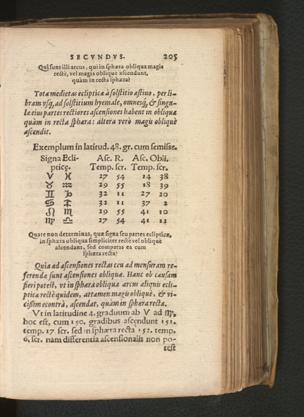 SECVNDVS. 205
Qui sunt illi arcus, qui in sphæra obliqua magis
rectè, vel magis obliquè ascendunt,
quàm in recta sphæra?
Tota medietas eclipticæ à solstitio æstiuo, per li-
bram vsq, ad solstitium hyemale, omnesq, & singu-
læ eius partes rectiores ascensiones habent in obliqua
quàm in recta sphæra: altera verò magis obliquè
ascendit.
Exemplum in latitud. 48. gr. cum semisse.
Signa Ecli- Asc. R. Asc. Obli.
pticę. Temp. scr. Temp. scr.
♈ ♓ 27 54 14 38
♉ ♒ 29 55 18 39
♊ ♑ 32 11 27 20
♋ ♐ 32 11 37 2
♌ ♏ 29 55 41 10
♍ ♎ 27 54 41 12
Quare non determinas, quæ signa seu partes eclipticæ,
in sphæra obliqua simpliciter rectè vel obliquè
ascendunt, sed comparas ea cum
sphæra recta?
Quia ad ascensiones rectas ceu ad mensuram re-
ferendæ sunt ascensiones obliquæ. Hanc ob causam
fieri potest, vt in sphæra obliqua arcus aliquis ecli-
pticæ rectè quidem, attamen magis obliquè, & vi-
cissim econtrà, ascendat, quàm in sphæra recta.
Vt in latitudine 4. graduum ab ♈ ad ♍,
hoc est, cum 150. gradibus ascendunt 151.
temp. 17 scr. sed in sphæra recta 152. temp.
6. scr. nam differentia ascensionalis non po-
test